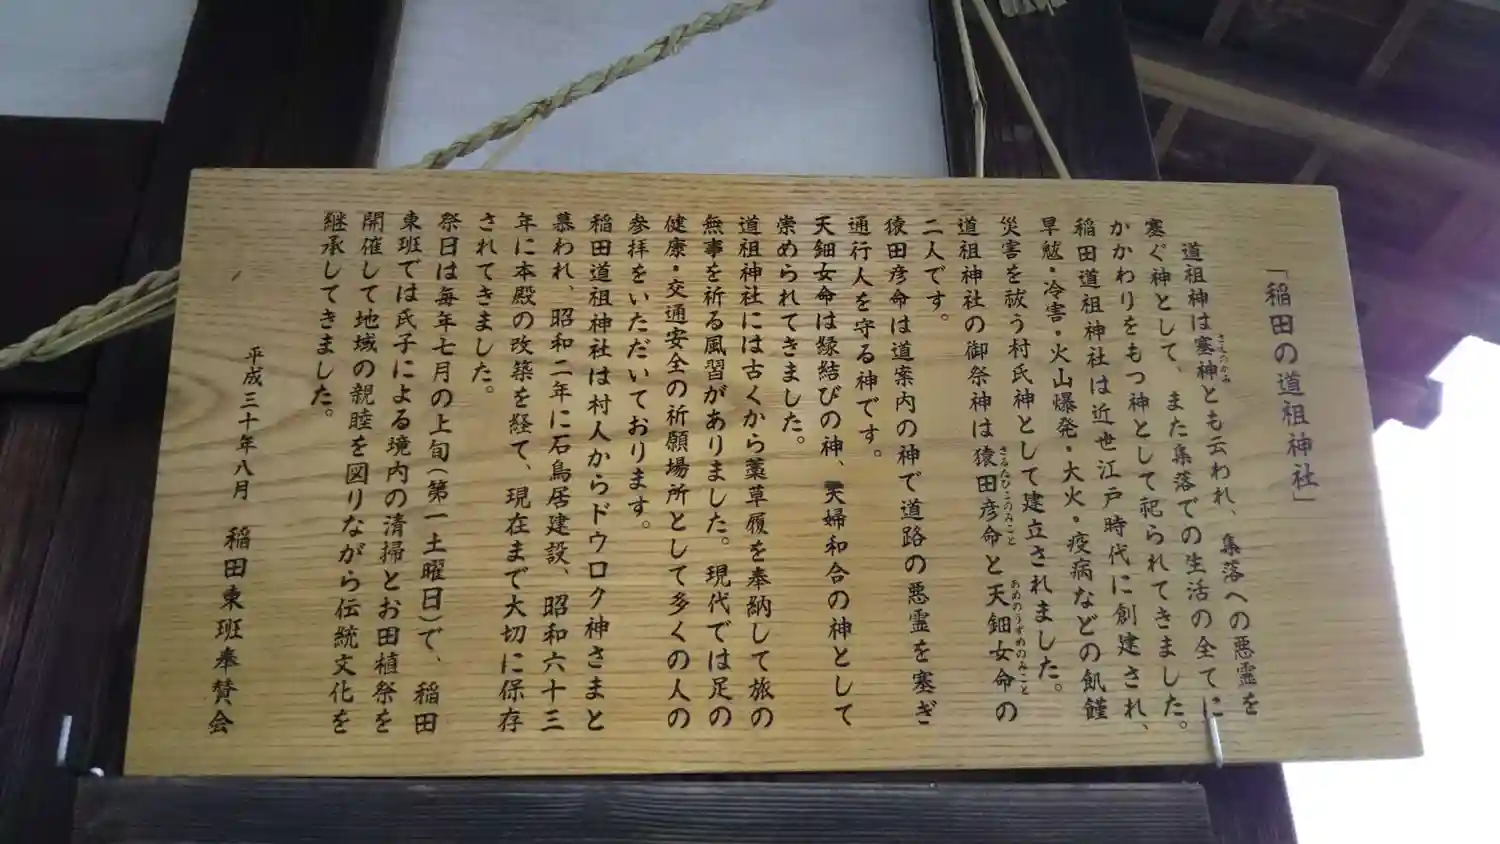 「稲田の道祖神社」
道祖神は塞神とも云われ、集落への悪霊を
さえのかみ
塞ぐ神として、また集落での生活の全てに
かかわりをもつ神として祀られてきました。
稲田道祖神社は近世江戸時代に創建され、
旱魃・冷害・火山爆発・大火・疫病などの飢饉
災害を祓う村氏神として建立されました。
道祖神社の御祭神は猿田彦命と天鈿女命の
さるたひこのみこと
あめのうずめのみこと
二人です。
猿田彦命は道案内の神で道路の悪霊を塞ぎ
通行人を守る神です。
天鈿女命は縁結びの神、夫婦和合の神として
崇められてきました。
道祖神社には古くから藁草履を奉納して旅の
無事を祈る風習がありました。現代では足の
健康・交通安全の祈願場所として多くの人の
参拝をいただいております。
稲田道祖神社は村人からドウロク神さまと
慕われ、昭和二年に石鳥居建設、昭和六十三
年に本殿の改築を経て、現在まで大切に保存
されてきました。
祭日は毎年七月の上旬(第一土曜日)で、稲田
東班では氏子による境内の清掃とお田植祭を
開催して地域の親睦を図りながら伝統文化を
継承してきました。
平成三十年八月 稲田東班奉賛会